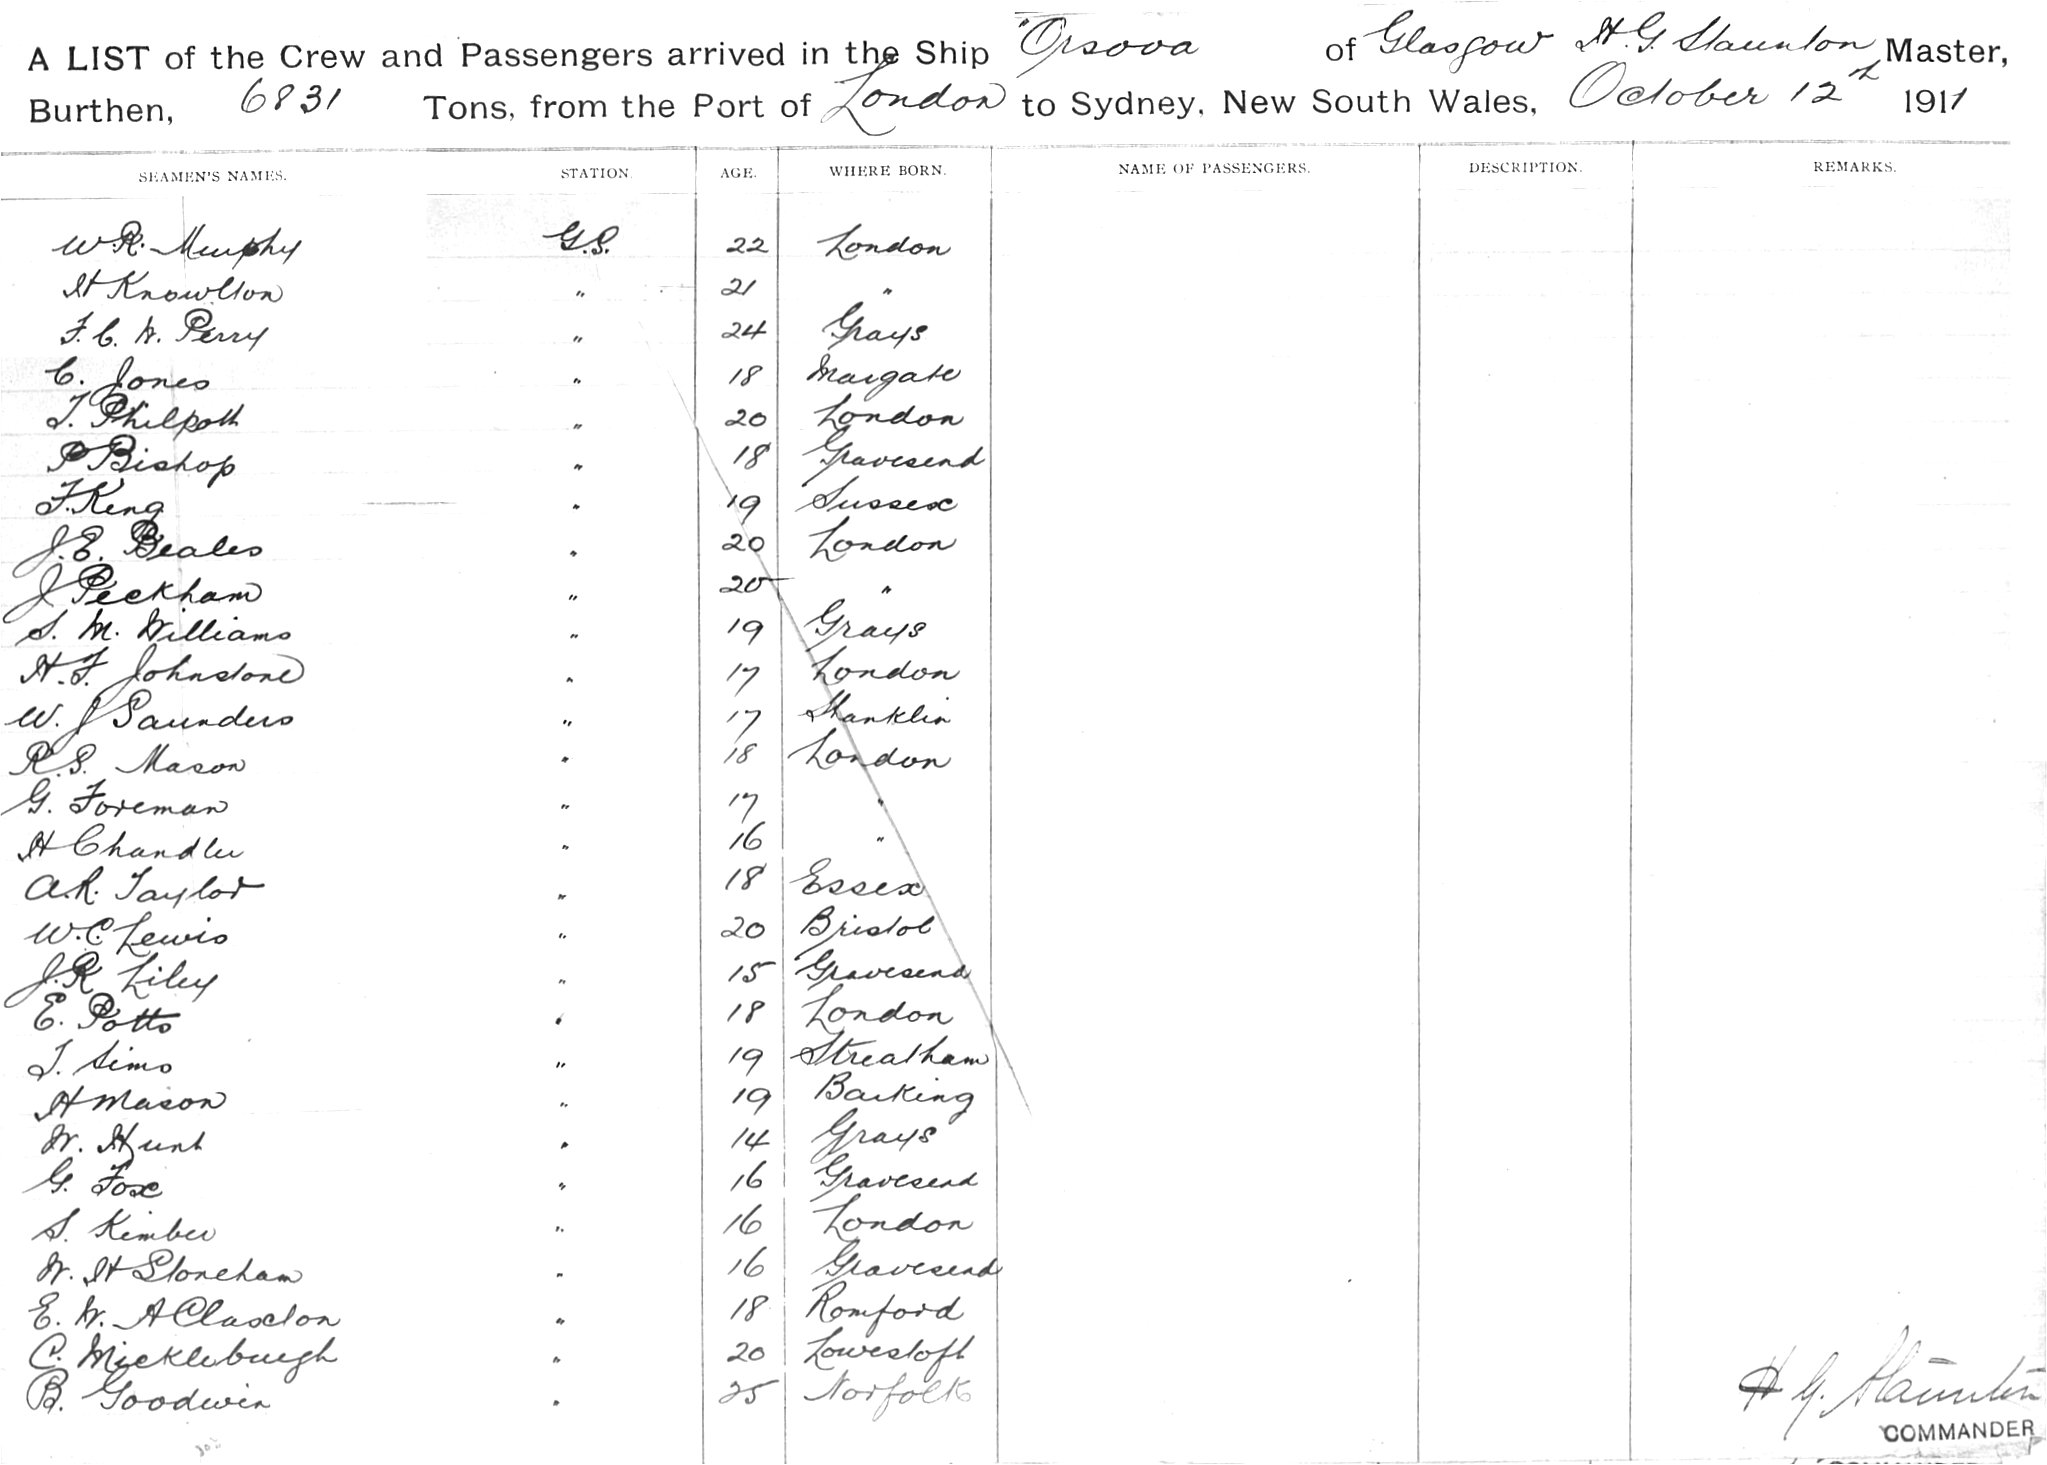 A LIST of the Crew and Passengers arrived in the Ship "Orsova of Glasgow H. G. Staunton Master,
Burthen, 6831 Tons, from the Port of London to Sydney, New South Wales, October 12th 1911
SEAMEN'S NAMES. STATION. AGE. WHERE BORN. NAME OF PASSENGERS. DESCRIPTION. REMARKS.
W. R. Murphy G.S. 22 London
H Knowlton " 21 "
F. C. W. Perry " 24 Grays
C. Jones " 18 Margate
T. Philpott " 20 London
P Bishop " 18 Gravesend
F. King " 19 Sussex
J. E. Beales " 20 London
J Peckham " 20 "
S. M. Williams " 19 Grays
H. F. Johnstone " 17 London
W. J Saunders " 17 Shanklin
R. S. Mason " 18 London
G. Foreman " 17 "
H Chandler " 16 "
A. R. Taylor " 18 Essex
W. C. Lewis " 20 Bristol
J. R Liley " 15 Gravesend
E. Potts " 18 London
T. Sims " 19 Streatham
H Mason " 19 Barking
W. Hunt " 14 Grays
G. Fox " 16 Gravesend
S. Kimber " 16 London
W. H Stoneham " 16 Gravesend
E. W. A Claxton " 18 Romford
C. Mickleburgh " 20 Lowestoft
B. Goodwin " 25 Norfolk
H G. Staunton
COMMANDER